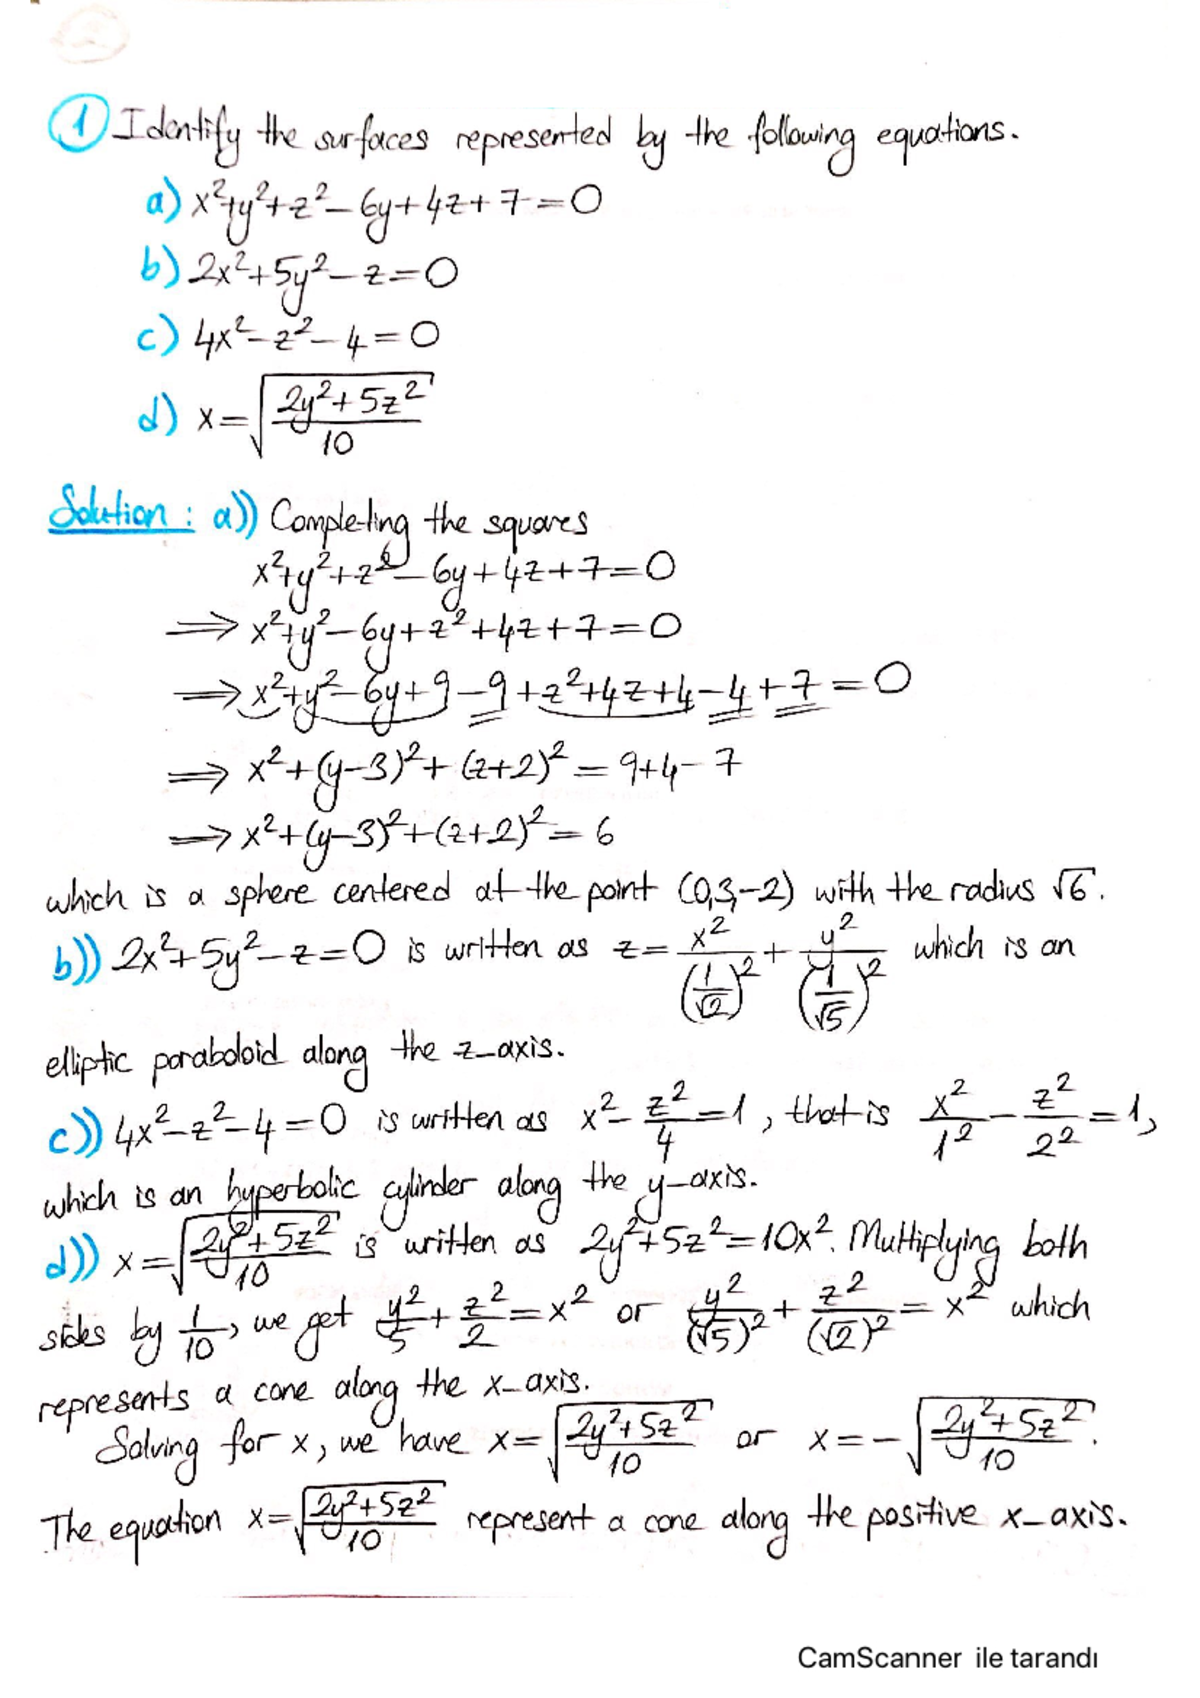 1 Identify the surfaces represented by the following equations.
a) x²+y²+z²-6y+4z+7=0
b) 2x²+5y²-z=0
c) 4x²-z²-4=0
d) x=√((2y²+5z²)/10)
Solution: a)) Completing the squares
x²+y²+z²-6y+4z+7=0
⟹ x²+y²-6y+z²+4z+7=0
⟹ x²+y²-6y+9-9+z²+4z+4-4+7=0
⟹ x²+(y-3)²+(z+2)²=9+4-7
⟹ x²+(y-3)²+(z+2)²=6
which is a sphere centered at the point (0,3,-2) with the radius √6.
b)) 2x²+5y²-z=0 is written as z= x²/(1/√2)² + y²/(1/√5)² which is an
elliptic paraboloid along the z-axis.
c)) 4x²-z²-4=0 is written as x²-z²/4=1, that is x²/1² - z²/2² =1,
which is an hyperbolic cylinder along the y-axis.
d)) x=√((2y²+5z²)/10) is written as 2y²+5z²=10x². Multiplying both
sides by 1/10, we get y²/5+z²/2=x² or y²/(√5)²+z²/(√2)²=x² which
represents a cone along the x-axis.
Solving for x, we have x=√((2y²+5z²)/10) or x=-√((2y²+5z²)/10).
The equation x=√((2y²+5z²)/10) represent a cone along the positive x-axis.
CamScanner ile tarandı